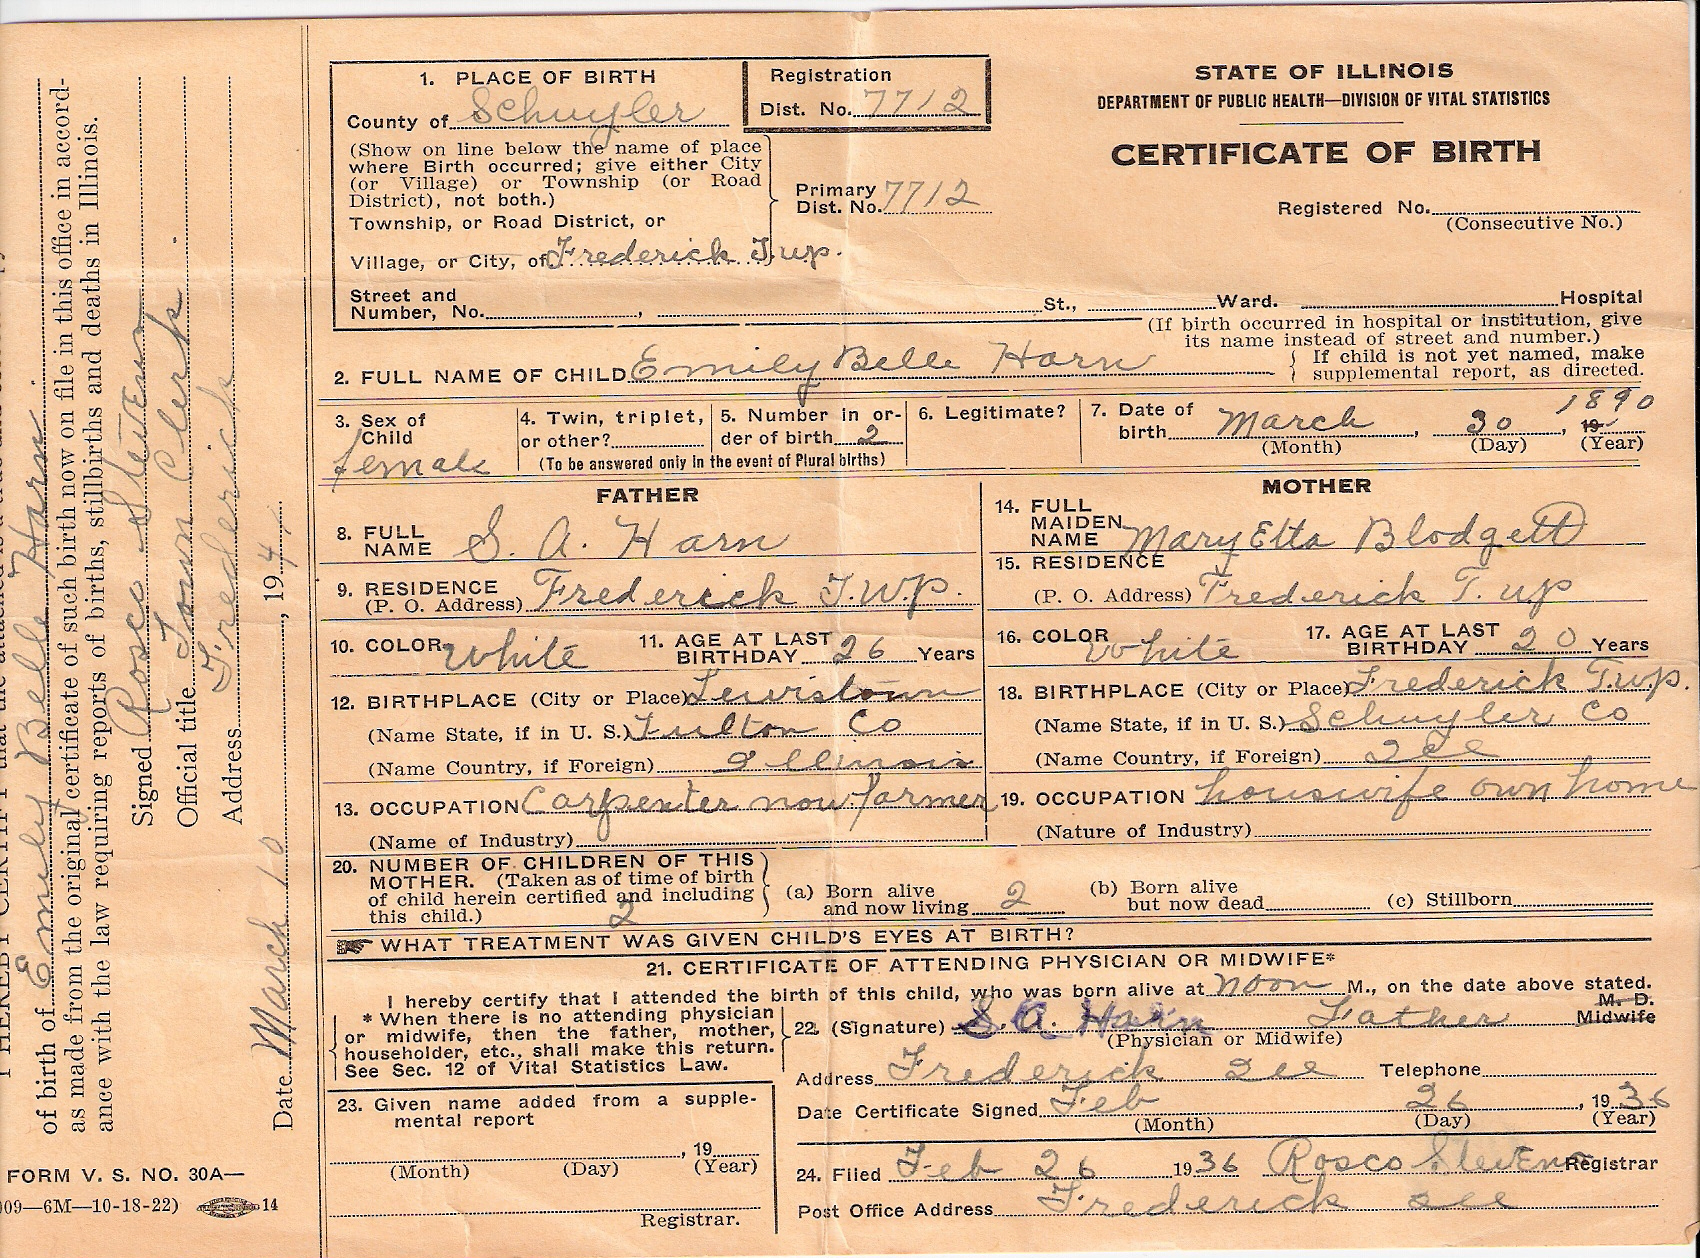 1. PLACE OF BIRTH
County of Schuyler
Registration
Dist. No. 7712
STATE OF ILLINOIS
DEPARTMENT OF PUBLIC HEALTH—DIVISION OF VITAL STATISTICS
CERTIFICATE OF BIRTH
(Show on line below the name of place
where Birth occurred; give either City
(or Village) or Township (or Road
District), not both.)
Primary
Dist. No. 7712
Registered No.
(Consecutive No.)
Township, or Road District, or
Village, or City, of Frederick Twp.
Street and
Number, No. , St., Ward. Hospital
(If birth occurred in hospital or institution, give
its name instead of street and number.)
2. FULL NAME OF CHILD Emily Belle Harn
If child is not yet named, make
supplemental report, as directed.
3. Sex of
Child
female
4. Twin, triplet,
or other?
5. Number in or-
der of birth 2
(To be answered only in the event of Plural births)
6. Legitimate?
7. Date of
birth March , 30 , 19 1890
(Month) (Day) (Year)
FATHER
8. FULL
NAME S. A. Harn
9. RESIDENCE
(P. O. Address) Frederick T.W.P.
10. COLOR White
11. AGE AT LAST
BIRTHDAY 26 Years
12. BIRTHPLACE (City or Place) Lewistown
(Name State, if in U. S.) Fulton Co
(Name Country, if Foreign) Illinois
13. OCCUPATION Carpenter now farmer
(Name of Industry)
MOTHER
14. FULL
MAIDEN
NAME Mary Etta Blodgett
15. RESIDENCE
(P. O. Address) Frederick Twp
16. COLOR White
17. AGE AT LAST
BIRTHDAY 20 Years
18. BIRTHPLACE (City or Place) Frederick Twp.
(Name State, if in U. S.) Schuyler Co
(Name Country, if Foreign) Ill
19. OCCUPATION housewife own home
(Nature of Industry)
20. NUMBER OF CHILDREN OF THIS
MOTHER. (Taken as of time of birth
of child herein certified and including
this child.) 2
(a) Born alive
and now living 2
(b) Born alive
but now dead
(c) Stillborn
WHAT TREATMENT WAS GIVEN CHILD'S EYES AT BIRTH?
21. CERTIFICATE OF ATTENDING PHYSICIAN OR MIDWIFE*
I hereby certify that I attended the birth of this child, who was born alive at noon M., on the date above stated.
* When there is no attending physician
or midwife, then the father, mother,
householder, etc., shall make this return.
See Sec. 12 of Vital Statistics Law.
22. (Signature) S. A. Harn Father M. D.
Midwife
(Physician or Midwife)
Address Frederick Ill Telephone
Date Certificate Signed Feb 26 , 1936
(Month) (Day) (Year)
23. Given name added from a supple-
mental report
, 19
(Month) (Day) (Year)
Registrar.
24. Filed Feb 26 1936 Rosco Stevens Registrar
Post Office Address Frederick Ill
of birth of Emily Belle Harn
as made from the original certificate of such birth now on file in this office in accord-
ance with the law requiring reports of births, stillbirths and deaths in Illinois.
Signed Rosco Stevens
Official title Town Clerk.
Address Frederick
Date March 10 , 194
FORM V. S. NO. 30A—
009—6M—10-18-22) 14